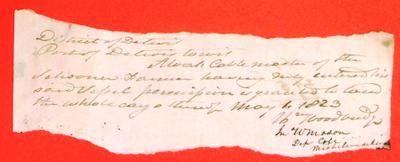 District of Detroit
Port of Detroit to wit
Noah Cable master of the
Schooner Farmer having duly entered his
said Vessel permission is granted to land
the whole cargo thereof May 1. 1823
Wm Woodbridge
Jn W Mason
Dep Coll
Michilimackinac